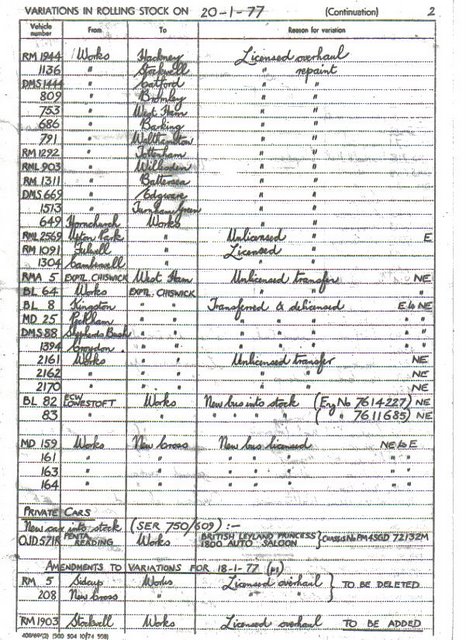 VARIATIONS IN ROLLING STOCK ON 20-1-77 (Continuation) 2
Vehicle number From To Reason for variation
RM 1944 Works Hackney Licensed overhaul
1136 " Stockwell " repaint
DMS 1444 " Catford " "
809 " Bromley " "
753 " West Ham " "
686 " Barking " "
791 " Walthamstow " "
RM 1292 " Tottenham " "
RML 903 " Willesden " "
RM 1311 " Battersea " "
DMS 669 " Edgware " "
1513 " Turnham Green " "
649 Hornchurch Works " "
RML 2569 Upton Park " Unlicensed " E
RM 1091 Fulwell " Licensed "
1304 Camberwell " " "
RMA 5 EXPTL. CHISWICK West Ham Unlicensed transfer NE
BL 64 Works EXPTL. CHISWICK " " "
BL 8 Kingston " " Transferred & delicensed E to NE
MD 25 Peckham " " " " " " "
DMS 88 Shepherds Bush " " " " " " "
1394 Croydon " " " " " " "
2161 Works " " Unlicensed transfer NE
2162 " " " " " NE
2170 " " " " " NE
BL 82 ECW LOWESTOFT Works New bus into stock (Eng No 7614227) NE
83 " " " " " " ( " " 7611685) NE
MD 159 Works New Cross New bus licensed NE to E
161 " " " " " " " "
163 " " " " " " " "
164 " " " " " " " "
PRIVATE CARS
New car into stock (SER 750/509) :-
OJD 571R PENTA READING Works BRITISH LEYLAND PRINCESS 1800 AUTO SALOON } CHASSIS No BM4SGD 72132M
AMENDMENTS TO VARIATIONS FOR 18-1-77
RM 5 Sidcup Works Licensed overhaul } TO BE DELETED
208 New Cross " " "
RM 1903 Stockwell Works Licensed overhaul TO BE ADDED